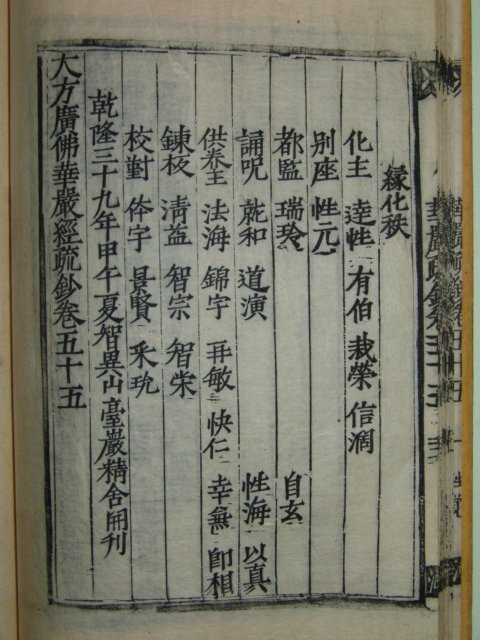 緣化秩
化主 達性 有伯 裁榮 信濶
別座 性元
都監 瑞玲 自玄
誦呪 就和 道演 性海 以真
供養主 法海 錦宇 再敏 快仁 幸無 卽相
鍊板 淸益 智宗 智荣
校對 体宇 景賢 采玧
乾隆三十九年甲午夏智異山臺巖精舍開刊
大方廣佛華嚴經疏鈔卷五十五